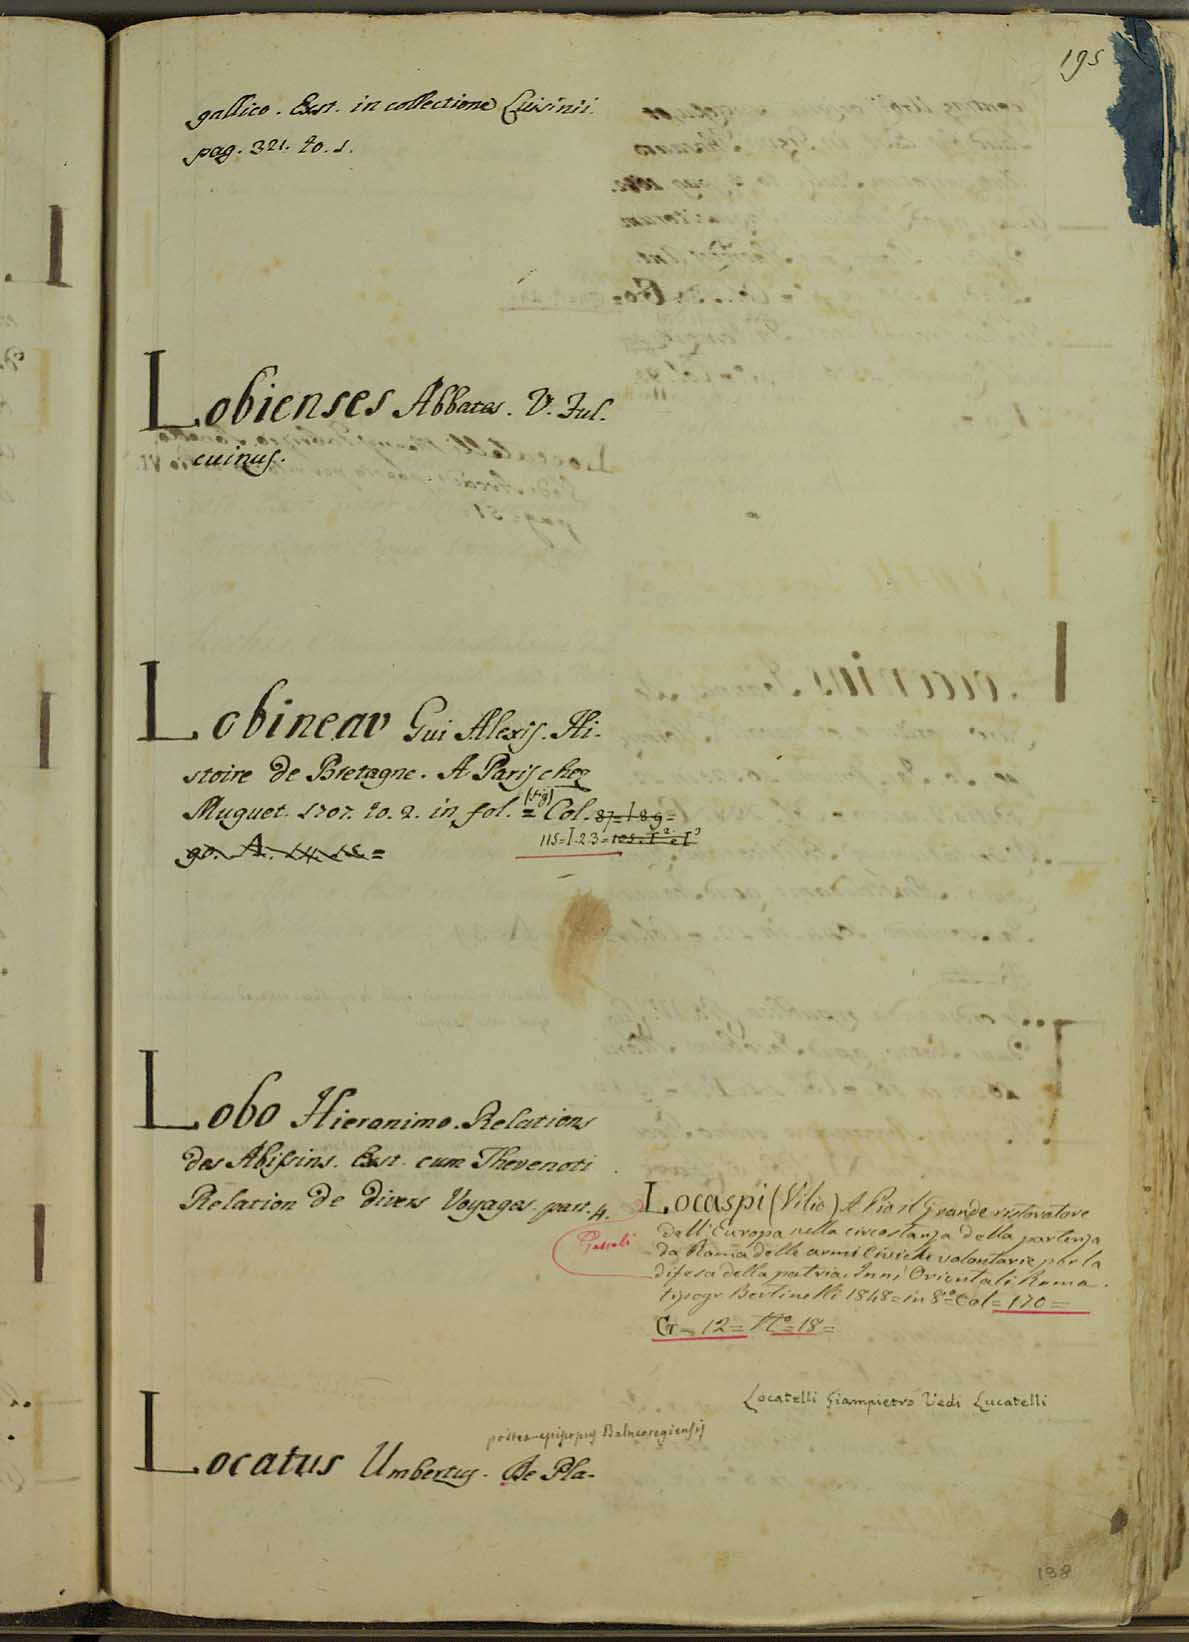 195
gallico. Exst. in collectione Luisinii.
pag. 321. to. 1.
Lobienses Abbates. V. Ful-
cuinus.
Lobineau Gui Alexis. Hi-
stoire de Bretagne. A Paris chez
Muguet. 1707. to. 2. in fol. = (fig) Col. 87=I 8.9=
90. A. 14. 15. = 115=I.23=105.I². e I³
Lobo Hieronimo. Relations
des Abissins. Exst. cum Thevenoti
Relation de divers Voyages. part. 4.
Locaspi (Vilio) A Pio il Grande ristoratore
dell'Europa nella circostanza della partenza
da Roma delle armi Civiche volontarie per la
difesa della patria. Inni Orientali Roma.
tipogr. Bertinelli 1848=in 8°=Col=170=
G=12=N°=18=
Locatelli Giampietro Vedi Lucatelli
postea episopus Balneoregiensis
Locatus Umbertus. De Pla-
198